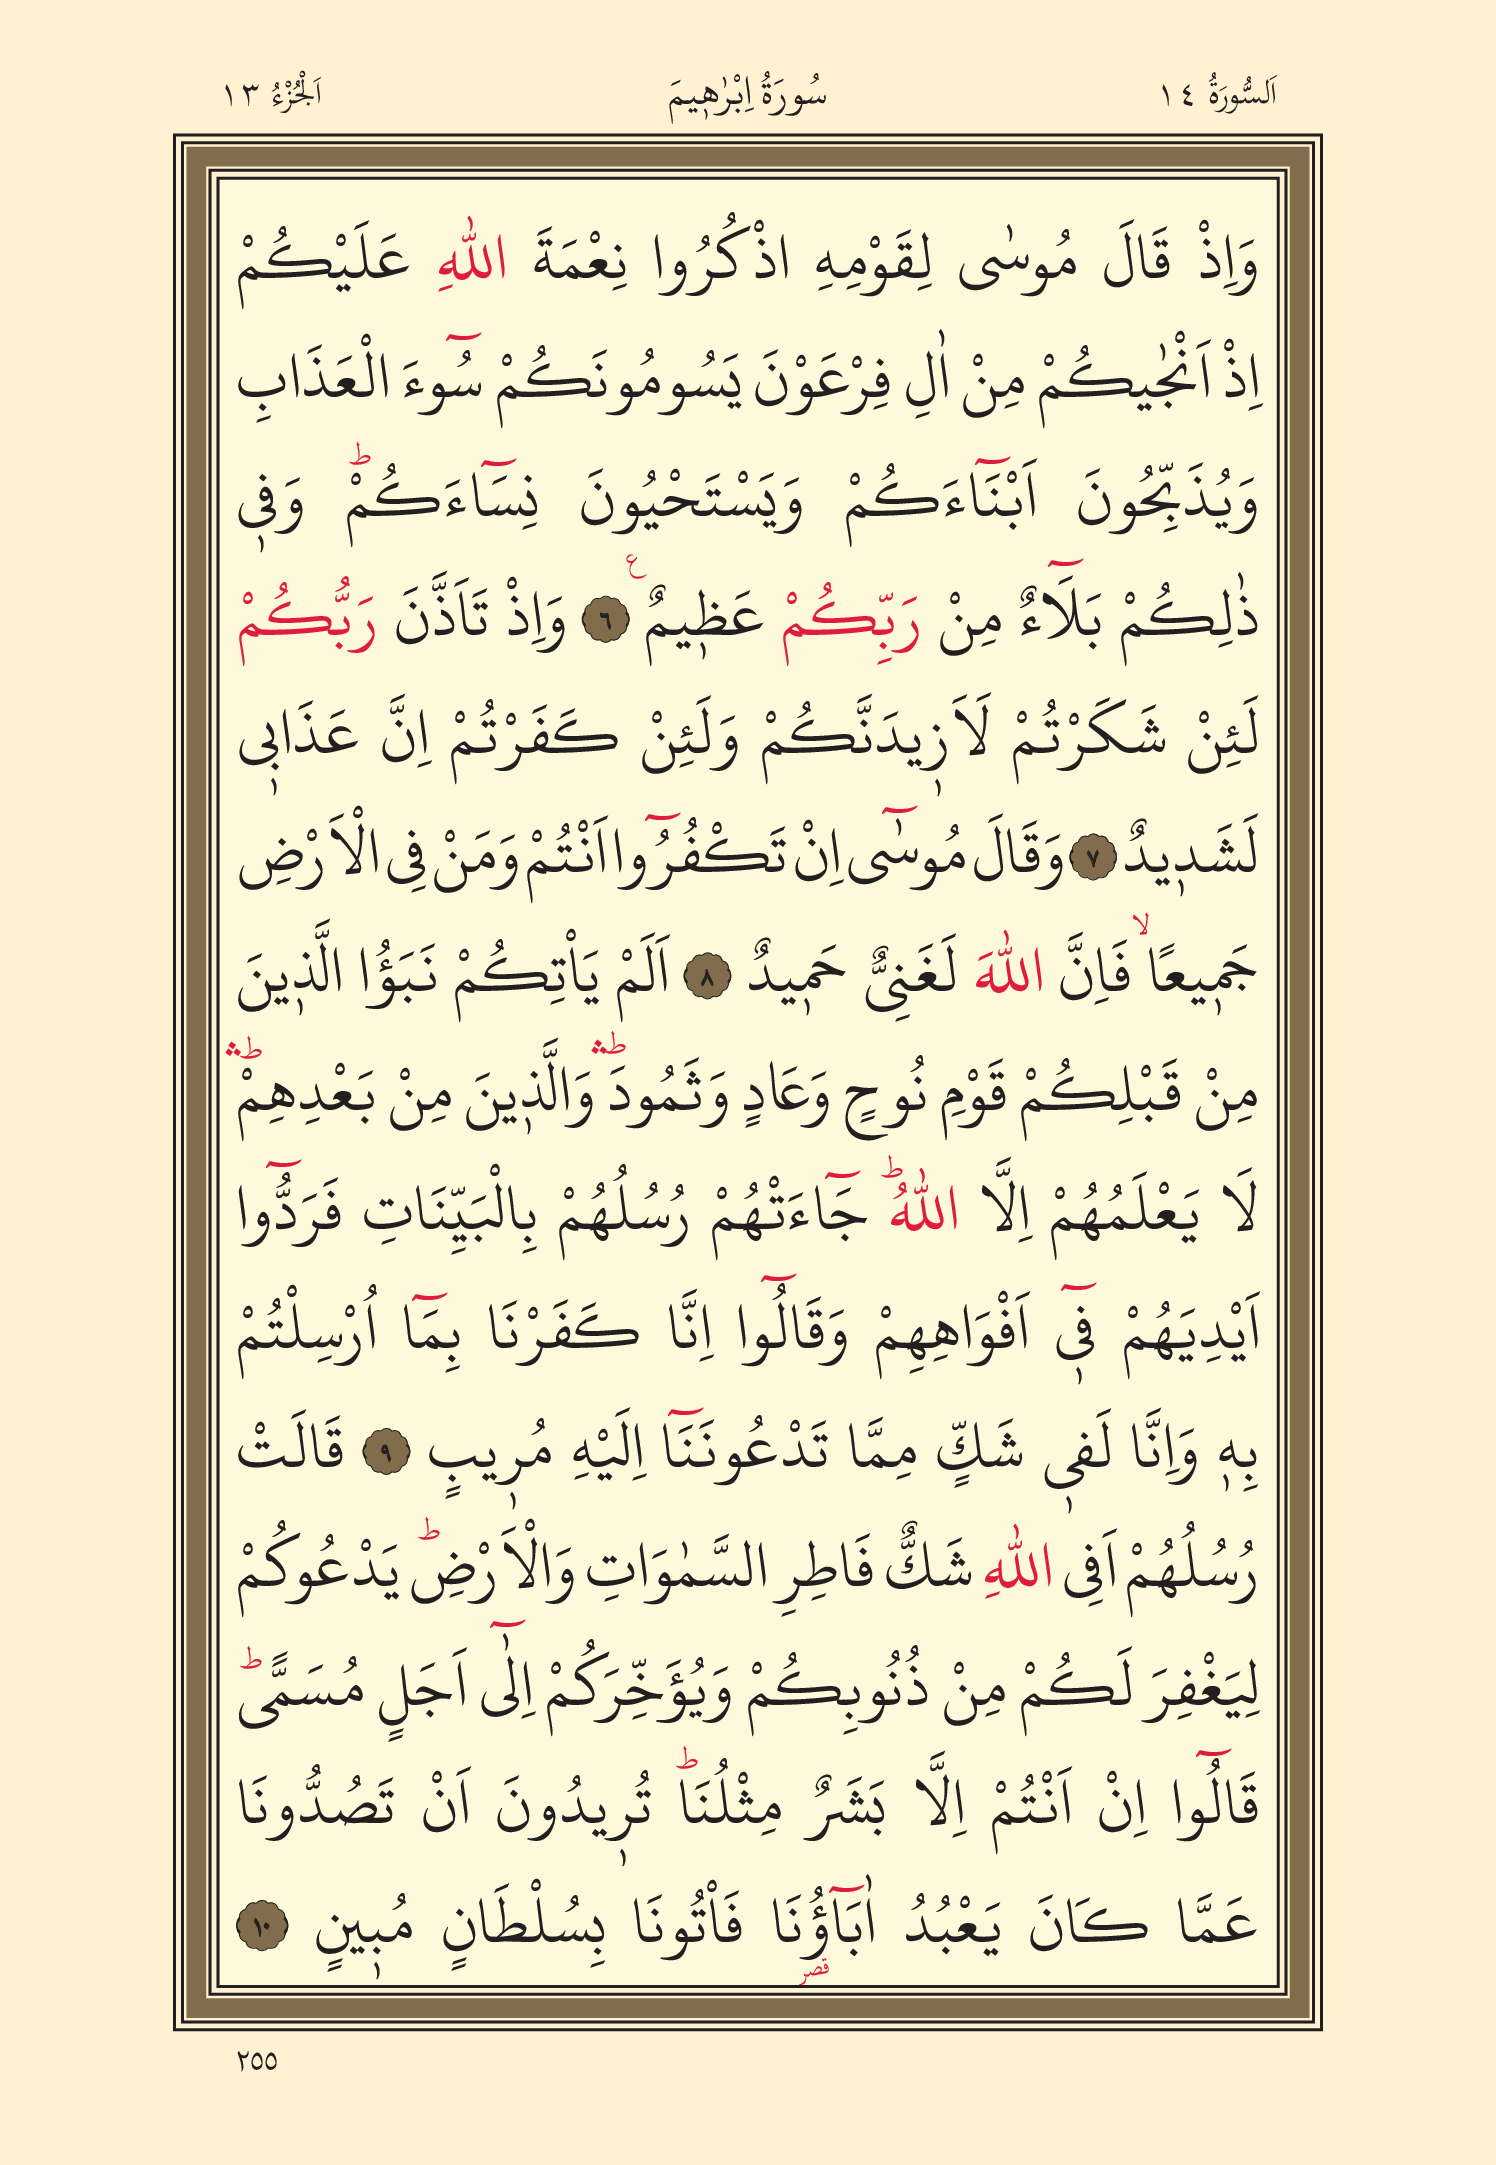 اَلسُّورَةُ ١٤ سُورَةُ اِبْرٰهٖيمَ اَلْجُزْءُ ١٣
وَاِذْ قَالَ مُوسٰى لِقَوْمِهِ اذْكُرُوا نِعْمَةَ اللّٰهِ عَلَيْكُمْ
اِذْ اَنْجٰيكُمْ مِنْ اٰلِ فِرْعَوْنَ يَسُومُونَكُمْ سُٓوءَ الْعَذَابِ
وَيُذَبِّحُونَ اَبْنَٓاءَكُمْ وَيَسْتَحْيُونَ نِسَٓاءَكُمْۜ وَفٖي
ذٰلِكُمْ بَلَٓاءٌ مِنْ رَبِّكُمْ عَظٖيمٌ ع ٦ وَاِذْ تَاَذَّنَ رَبُّكُمْ
لَئِنْ شَكَرْتُمْ لَاَزٖيدَنَّكُمْ وَلَئِنْ كَفَرْتُمْ اِنَّ عَذَابٖي
لَشَدٖيدٌ ٧ وَقَالَ مُوسٰٓى اِنْ تَكْفُرُٓوا اَنْتُمْ وَمَنْ فِي الْاَرْضِ
جَمٖيعًاۙ فَاِنَّ اللّٰهَ لَغَنِيٌّ حَمٖيدٌ ٨ اَلَمْ يَاْتِكُمْ نَبَؤُا الَّذٖينَ
مِنْ قَبْلِكُمْ قَوْمِ نُوحٍ وَعَادٍ وَثَمُودَۜۛ وَالَّذٖينَ مِنْ بَعْدِهِمْۜۛ
لَا يَعْلَمُهُمْ اِلَّا اللّٰهُۜ جَٓاءَتْهُمْ رُسُلُهُمْ بِالْبَيِّنَاتِ فَرَدُّٓوا
اَيْدِيَهُمْ فٖٓي اَفْوَاهِهِمْ وَقَالُٓوا اِنَّا كَفَرْنَا بِمَٓا اُرْسِلْتُمْ
بِهٖ وَاِنَّا لَفٖي شَكٍّ مِمَّا تَدْعُونَنَٓا اِلَيْهِ مُرٖيبٍ ٩ قَالَتْ
رُسُلُهُمْ اَفِي اللّٰهِ شَكٌّ فَاطِرِ السَّمٰوَاتِ وَالْاَرْضِۜ يَدْعُوكُمْ
لِيَغْفِرَ لَكُمْ مِنْ ذُنُوبِكُمْ وَيُؤَخِّرَكُمْ اِلٰٓى اَجَلٍ مُسَمًّىۜ
قَالُٓوا اِنْ اَنْتُمْ اِلَّا بَشَرٌ مِثْلُنَاۜ تُرٖيدُونَ اَنْ تَصُدُّونَا
عَمَّا كَانَ يَعْبُدُ اٰبَٓاؤُ۬نَا فَاْتُونَا بِسُلْطَانٍ مُبٖينٍ ١٠
قصر
٢٥٥